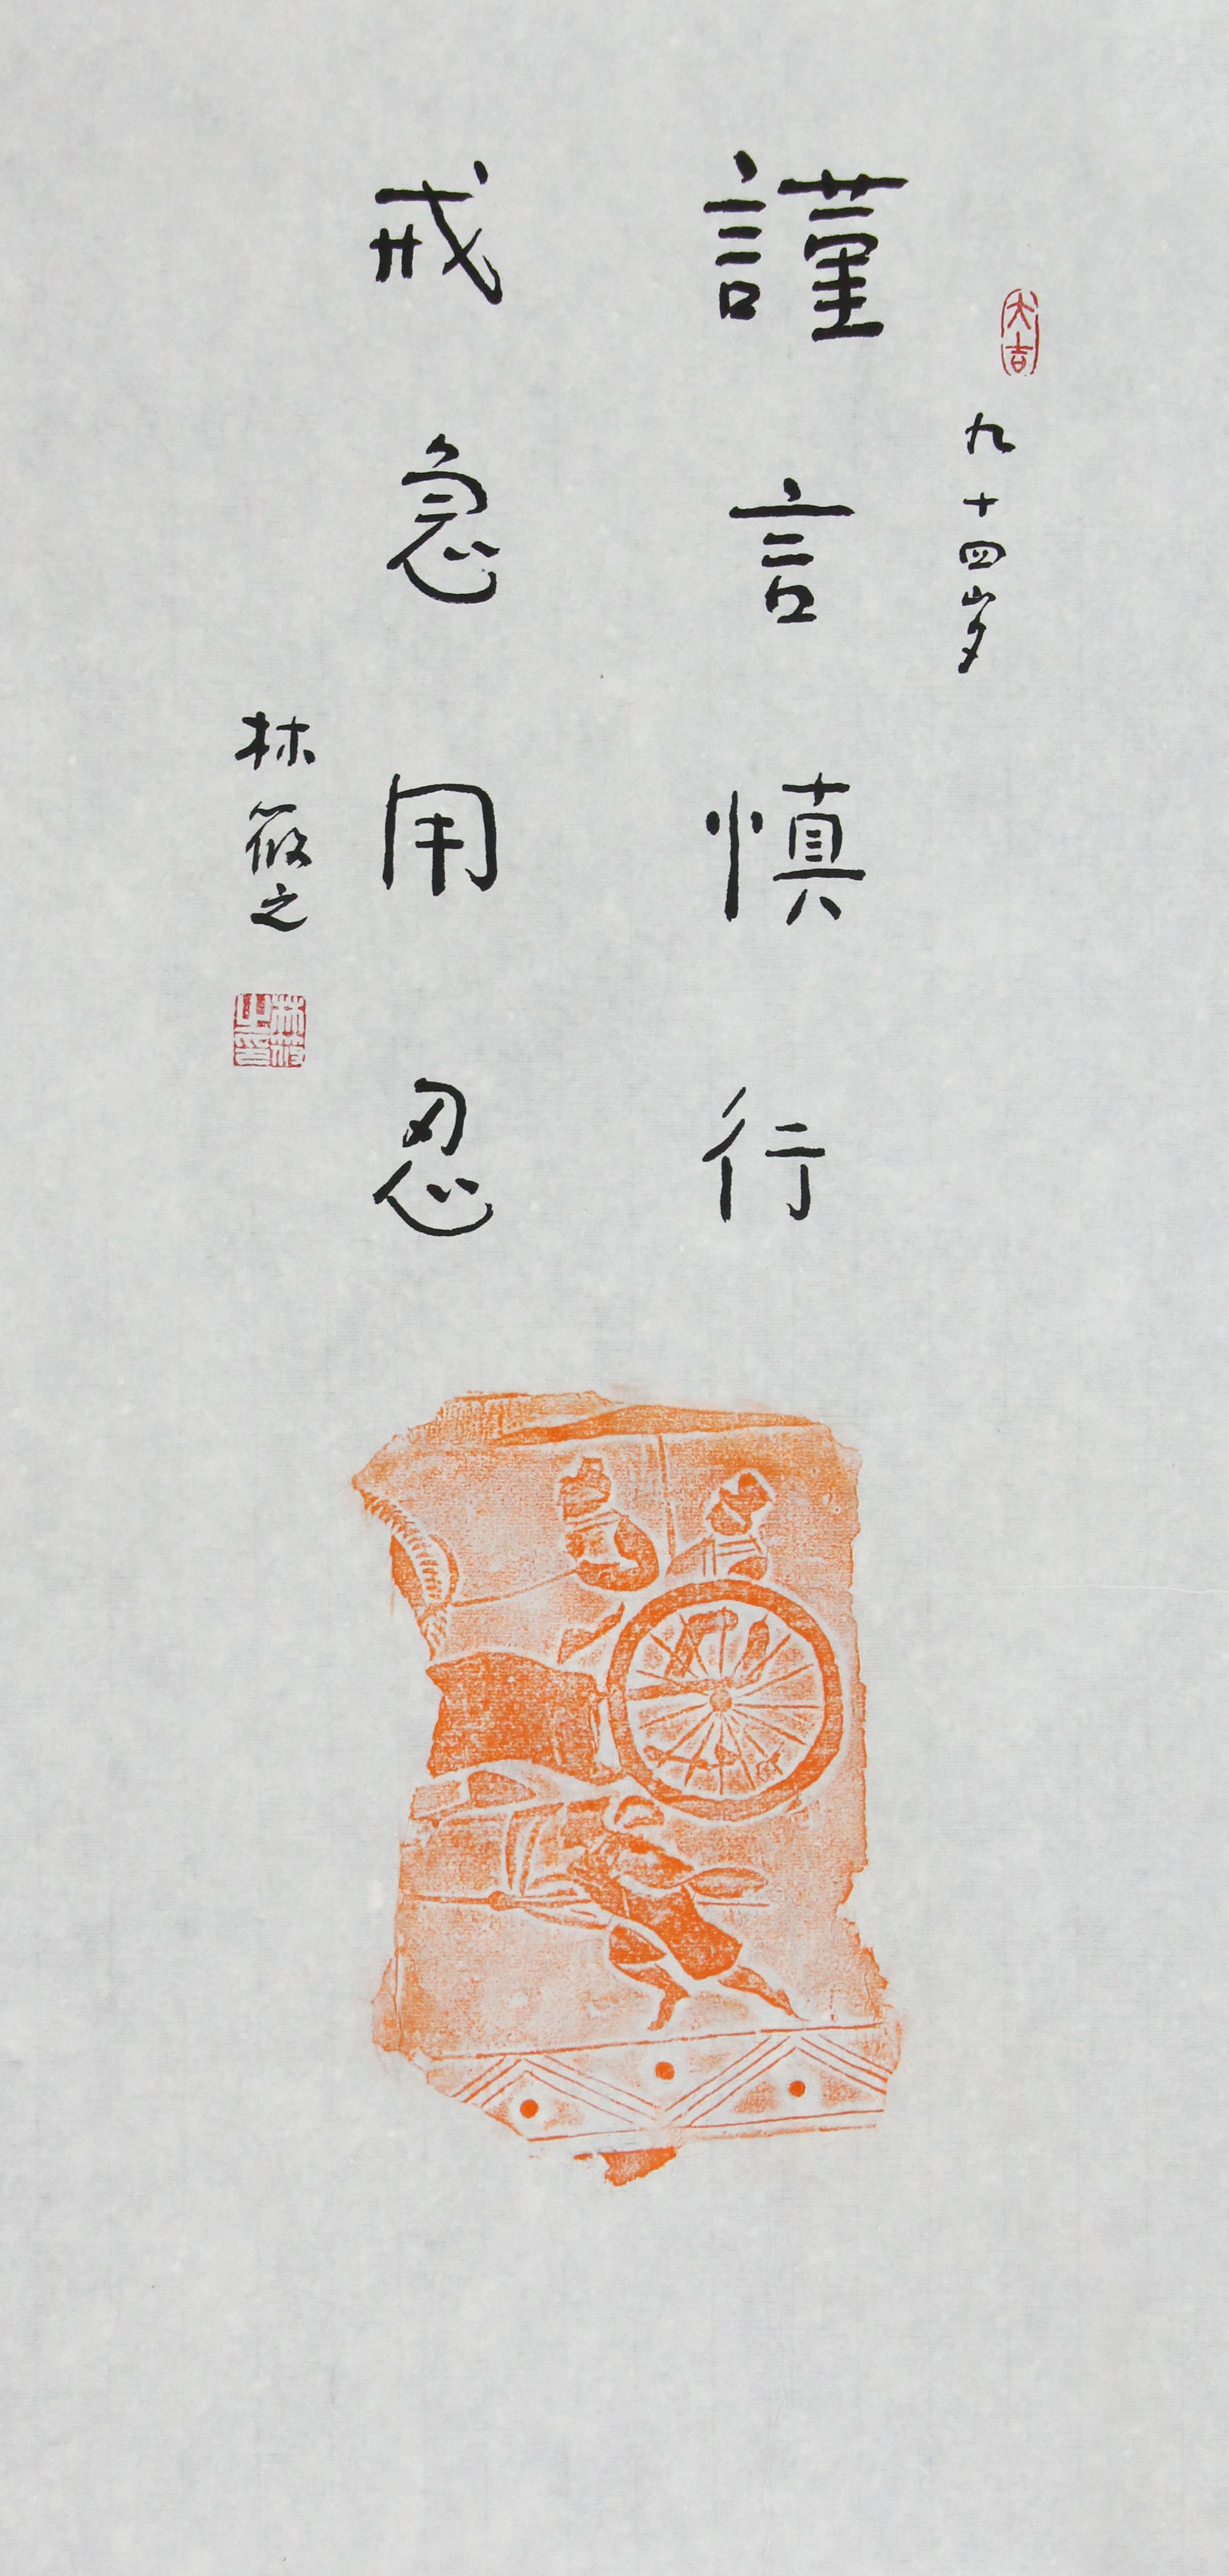 大吉
九十四岁
謹言慎行
戒急用忍
林筱之
林筱之印